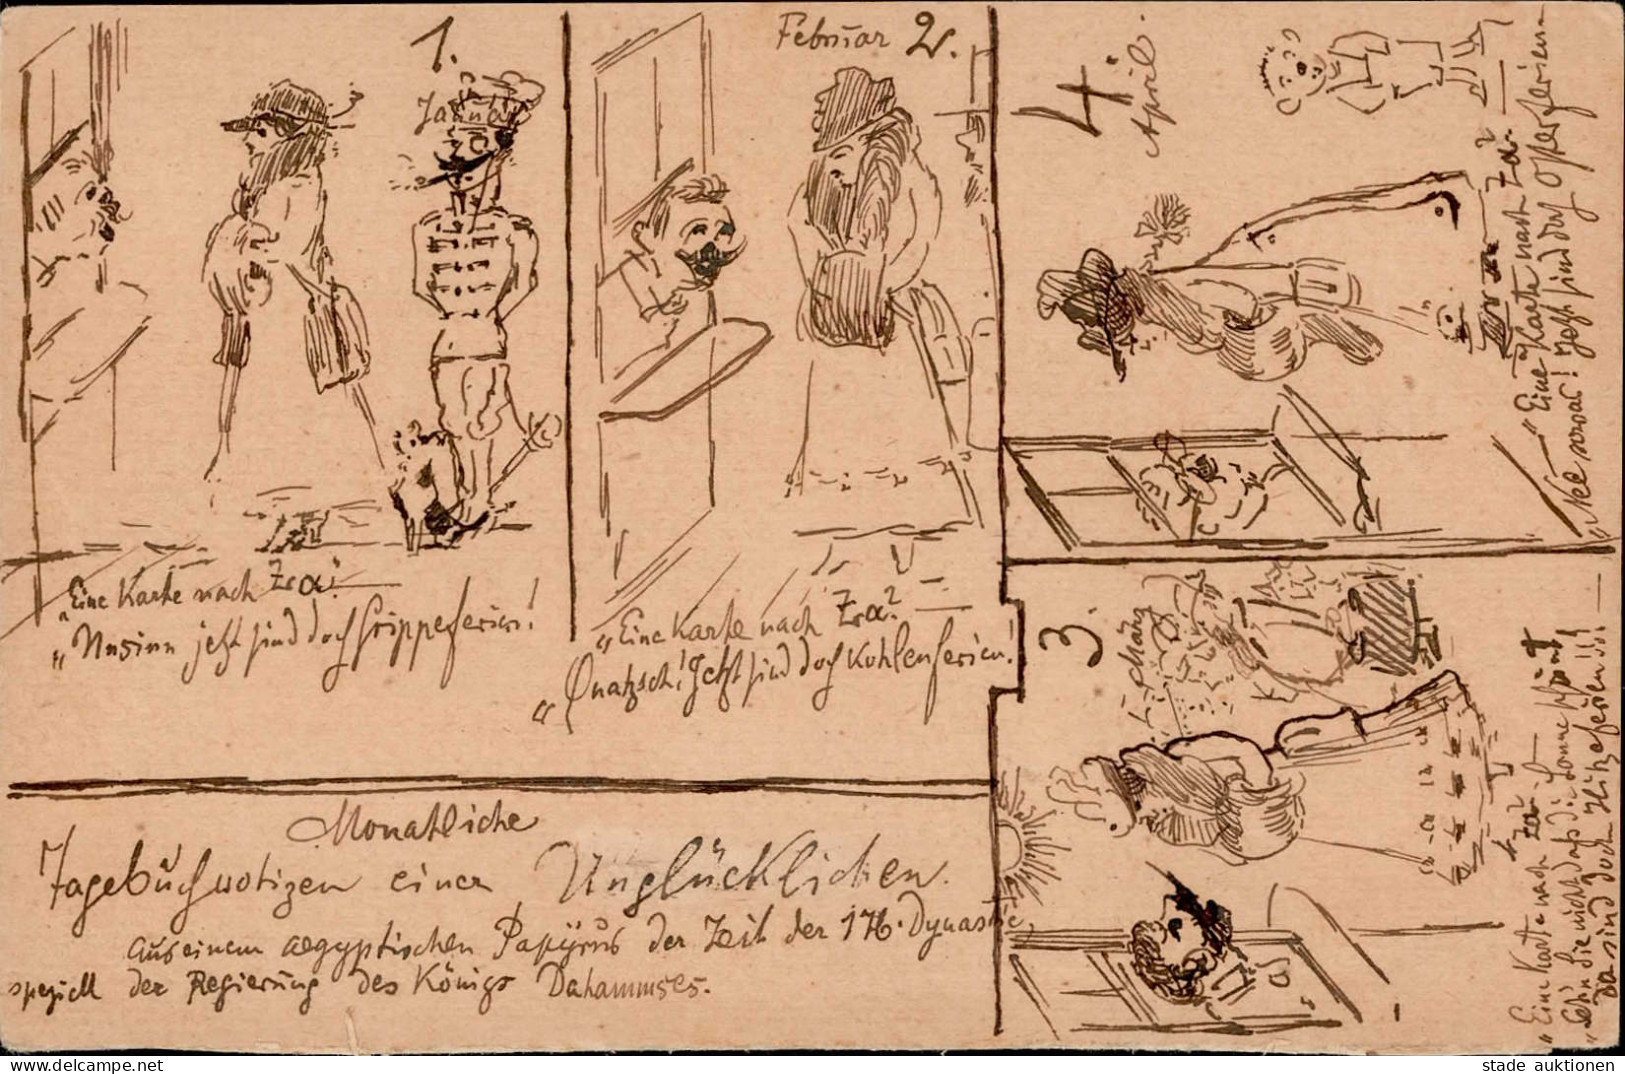 1.
Januar
"Eine Karte nach Zra? —
"Unsinn jetzt sind doch Grippeferien!
Februar 2.
"Eine Karte nach Zra? —
"Quatzsch! Jetzt sind doch Kohlenferien!
3. März
"Eine Karte nach Zra? —
"Sehn Sie nicht daß die Sonne scheint
Da sind doch Hitzeferien!!! —
4. April.
"Eine Karte nach Zra? —
"Nee sowas! Jetzt sind doch Osterferien
Monatliche
Tagebuchnotizen einer Unglücklichen.
aus einem aegyptischen Papÿrus der Zeit der 176. Dynastie
speziell der Regierung des Königs Dahammses.
stade auktionen